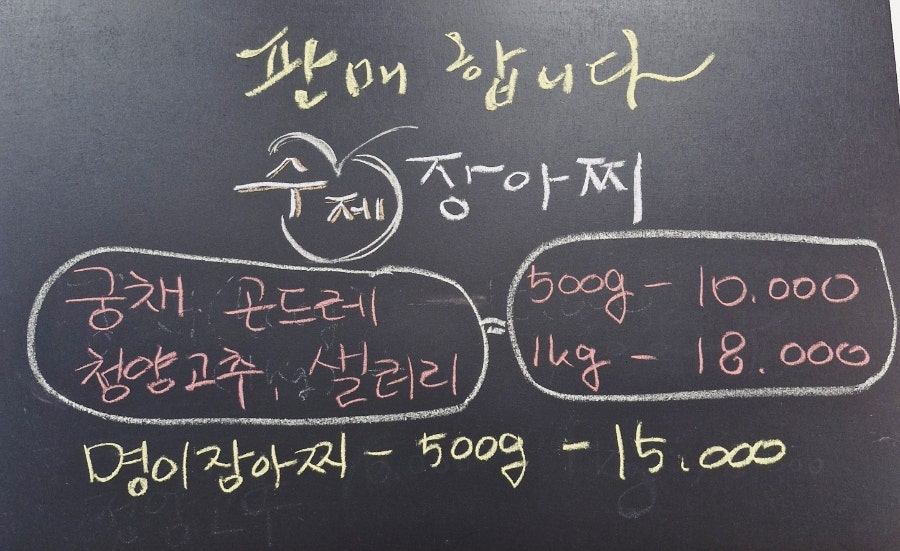 판매 합니다
수제 장아찌
궁채 곤드레
청양고추, 샐러리
= 500g - 10.000
1kg - 18.000
명이장아찌 - 500g - 15.000